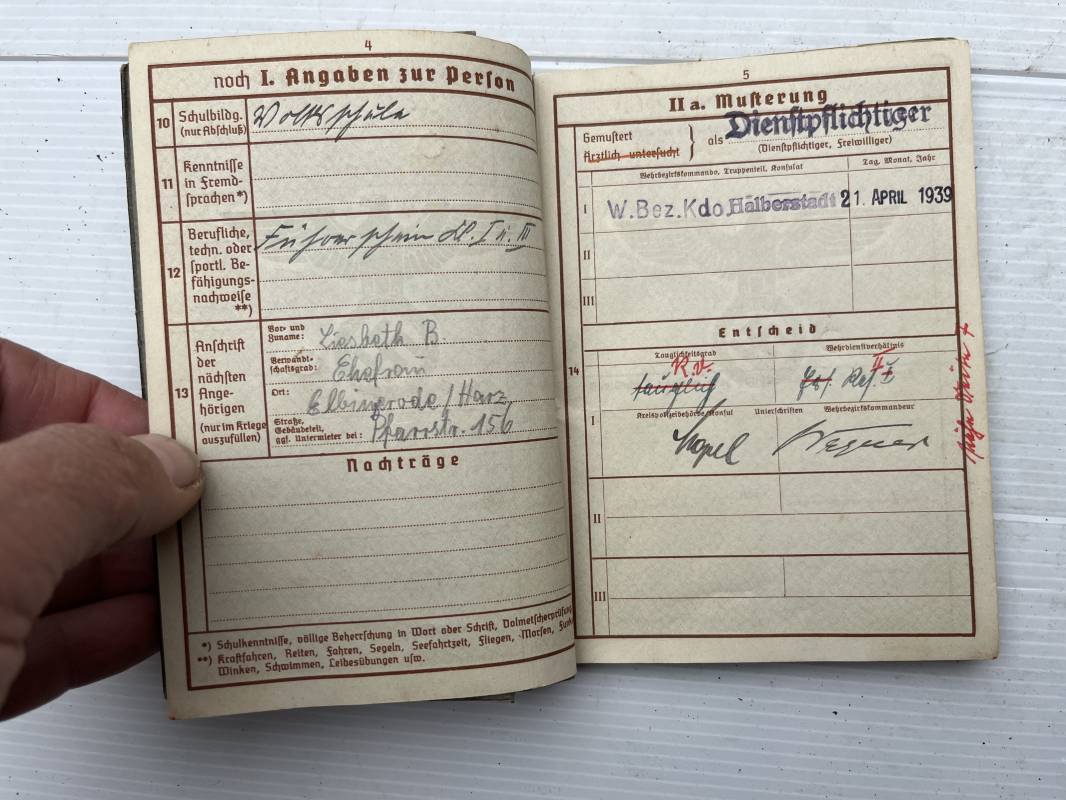 4
noch I. Angaben zur Person
10
Schulbildg.
(nur Abschluß)
Volksschule
11
Kenntnisse
in Fremd-
sprachen*)
12
Berufliche,
techn. oder
sportl. Be-
fähigungs-
nachweise
**)
Führerschein Kl. I u. IV
13
Anschrift
der
nächsten
Ange-
hörigen
(nur im Kriege
auszufüllen)
Vor- und
Zuname:
Liesbeth B.
Verwandt-
schaftsgrad:
Ehefrau
Ort:
Elbingerode/Harz
Straße,
Gebäudeteil,
ggf. Untermieter bei:
Pfarrstr. 156
Nachträge
*) Schulkenntnisse, völlige Beherrschung in Wort oder Schrift, Dolmetscherprüfung
**) Kraftfahren, Reiten, Fahren, Segeln, Seefahrtzeit, Fliegen, Morsen, Funk
Winken, Schwimmen, Leibesübungen usw.
5
II a. Musterung
Gemustert
Ärztlich untersucht
als
Dienstpflichtiger
(Dienstpflichtiger, Freiwilliger)
Wehrbezirkskommando, Truppenteil, Konsulat
Tag, Monat, Jahr
I
W.Bez.Kdo. Halberstadt
21. APRIL 1939
II
III
14
Entscheid
Tauglichkeitsgrad
Wehrdienstverhältnis
K.v.
II
tauglich
Ers. Res. I
I
Kreispolizeibehörde/Konsul
Unterschriften
Wehrbezirkskommandeur
Wegner
II
III